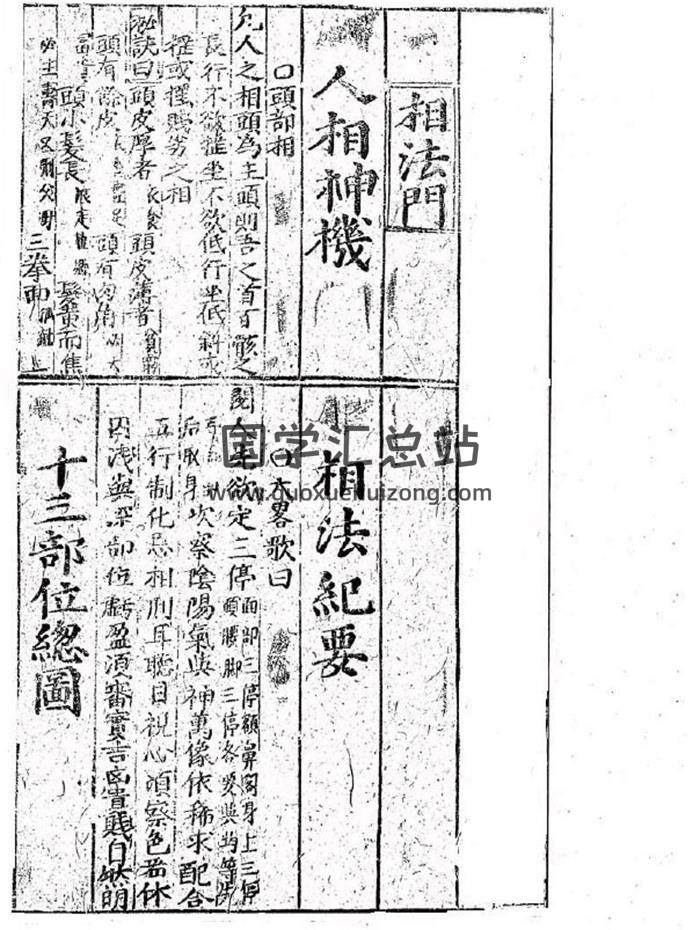 相法門
人相神機
口頭部相
凡人之相頭為主頭則吾之首百骸之
長行不欲搖坐不欲低行坐低斜或
搖或擺賤劣之相
秘訣曰頭皮厚者 頭皮薄者
頭有餘皮 頭有肉角
頭小髮長 髮黃而焦
三拳面
相法紀要
口大畧歌曰
閱人先欲定三停面部三停額鼻閣身上三停
頭腰脚三停各要與均等
后取身次察陰陽氣與神萬像依稀求配合
五行制化忌相刑耳聽目視心須察色若休
囚浅與深部位虧盈須審實吉凶貴賤自然明
十三部位總圖
国学汇总站
www.guoxuehuizong.com